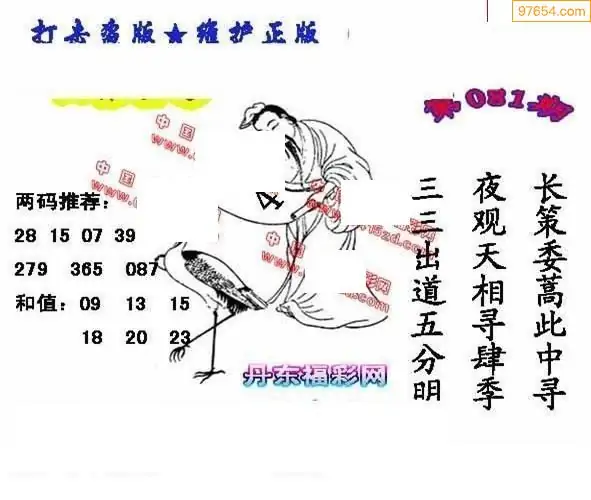 97654.com
打击盗版★维护正版
第081期
中国
www.
中国
两码推荐：
28 15 07 39
279 365 087
和值：09 13 15
18 20 23
4
丹东福彩网
长策委蒿此中寻
夜观天相寻肆季
三三出道五分明